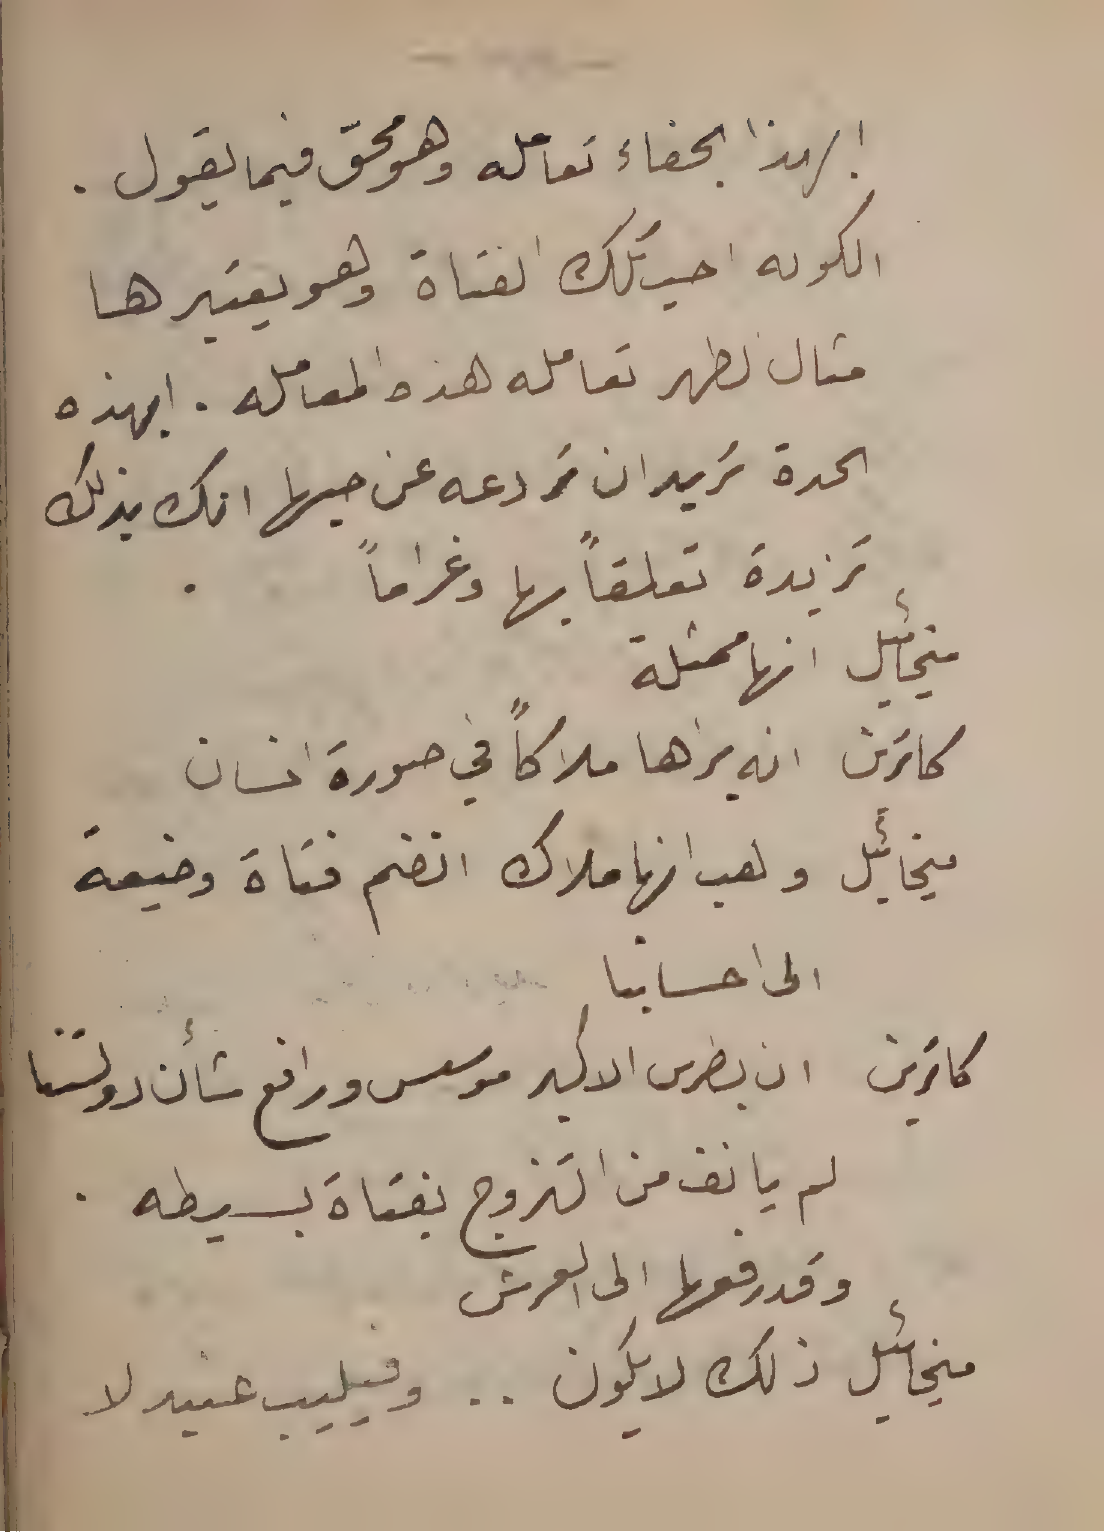 ابهذا الجفاء تعامله وهو محقّ فيما يقول .
الكونه احب تلك الفتاة وهو يعتبرها
مثال الطهر تعامله هذه المعامله . ابهذه
الحدة تريد ان تردعه عن حبها انك بذلك
تزيدة تعلقاً بها وغراماً .
ميخائيل انها ممثلة
كاترين انه يراها ملاكاً في صورة انسان
ميخائيل وهب انها ملاك انضم فتاة وضيعة
الى احسابنا
كاترين ان بطرس الاكبر موسس ورافع شأن دولتنا
لم يانف من التزوج بفتاة بسيطه .
وقد رفعها الى العرش
ميخائيل ذلك لا يكون .. وفيليب عنيد لا